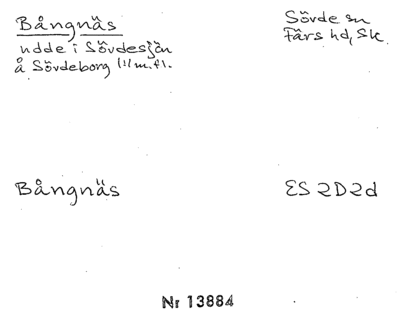 Bångnäs
udde i Sövdesjön
å Sövdeborg 1/1 m.fl.
Sövde sn
Färs hd, Sk.
Bångnäs
ES 2D2d
Nr 13884